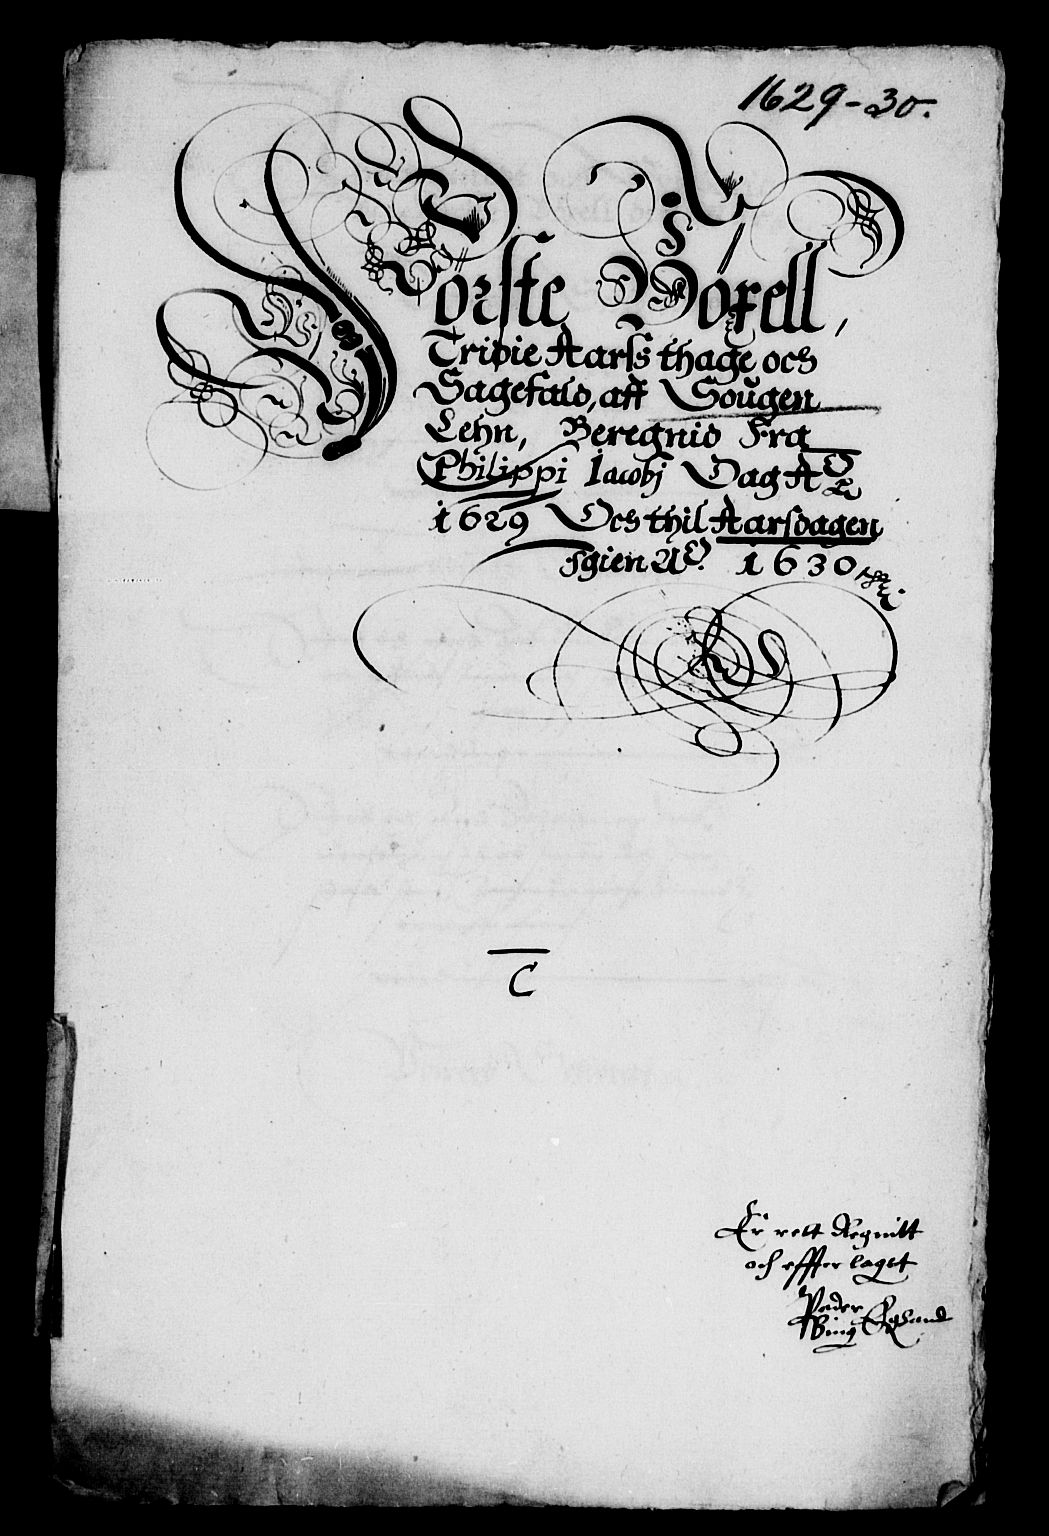 1629-30.
Förste Böxell,
Tridie Aarss thage och
Sagefald, aff Sougen
Lehn, Beregnid Fra
Philippi Iacobj Dag Aō
1629 Och thil Aarsdagen
Igien Aō. 1630
C
Er rett Regnitt
och effter laget
Peder
Bing